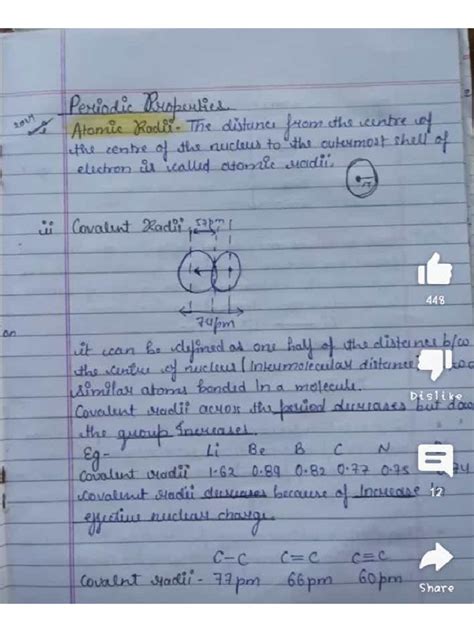 Periodic Properties
2014
Atomic Radii - The distance from the centre of
the centre of the nucleus to the outermost shell of
electron is called atomic radii.
ii Covalent Radii
74pm
it can be defined as one half of the distance b/w
the centre of nucleus (Intermolecular distance
similar atoms bonded In a molecule.
Covalent radii across the period decreases but dow
the group Increases.
Eg- Li Be B C N
Covalent radii 1.62 0.89 0.82 0.77 0.75 0.74
covalent radii decreases because of Increase
effective nuclear charge.
C-C C=C C≡C
Covalent radii - 77pm 66pm 60pm
on
448
Dislike
12
Share